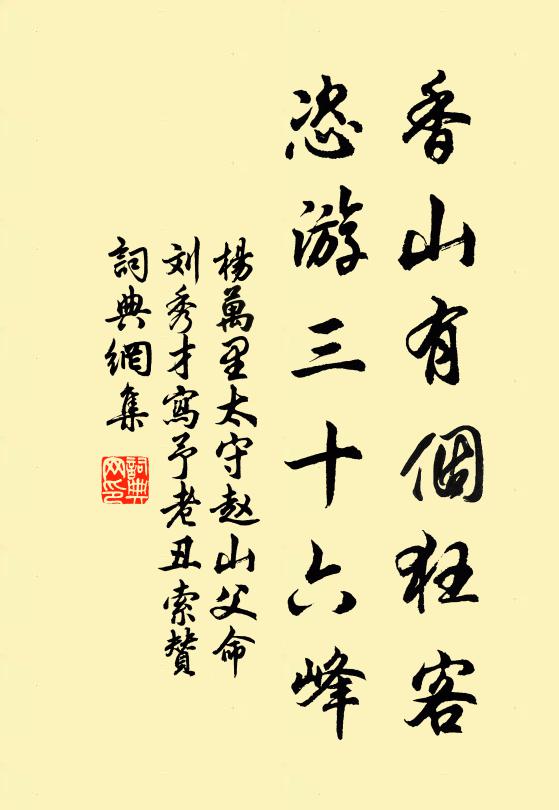 香山有個狂客
恣游三十六峰
楊萬里太守赵山父命
刘秀才寫予老丑索贊
詞典網集
詞典
网印